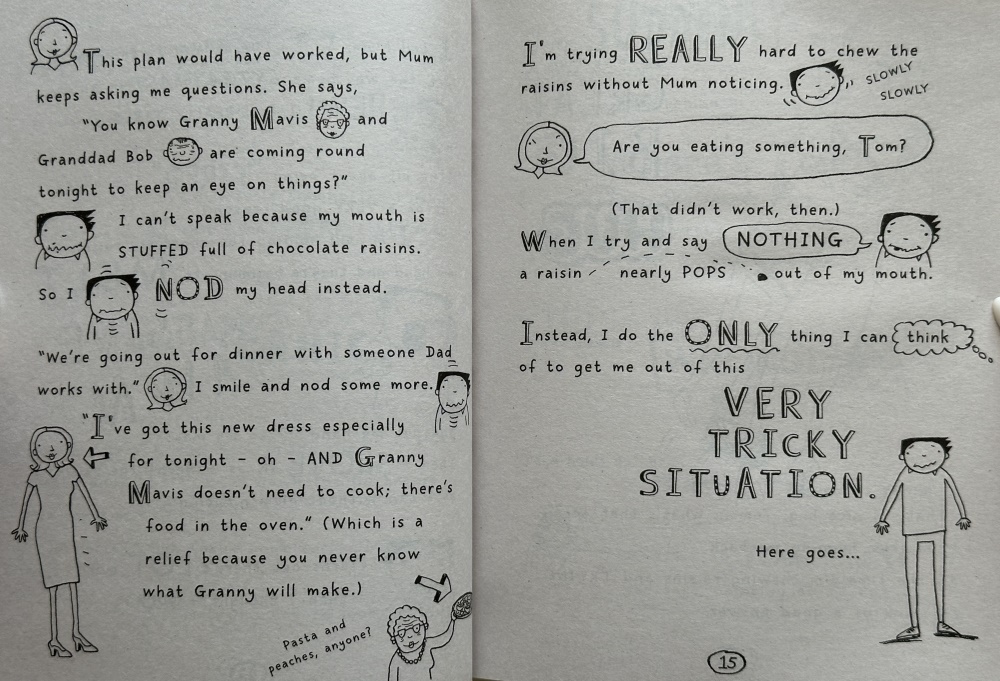 This plan would have worked, but Mum
keeps asking me questions. She says,
"You know Granny Mavis and
Granddad Bob are coming round
tonight to keep an eye on things?"
I can't speak because my mouth is
STUFFED full of chocolate raisins.
So I NOD my head instead.
"We're going out for dinner with someone Dad
works with." I smile and nod some more.
"I've got this new dress especially
for tonight - oh - AND Granny
Mavis doesn't need to cook; there's
food in the oven." (Which is a
relief because you never know
what Granny will make.)
Pasta and
peaches, anyone?
I'm trying REALLY hard to chew the
raisins without Mum noticing.
SLOWLY
SLOWLY
Are you eating something, Tom?
(That didn't work, then.)
When I try and say NOTHING
a raisin nearly POPS out of my mouth.
Instead, I do the ONLY thing I can think
of to get me out of this
VERY
TRICKY
SITUATION.
Here goes...
15